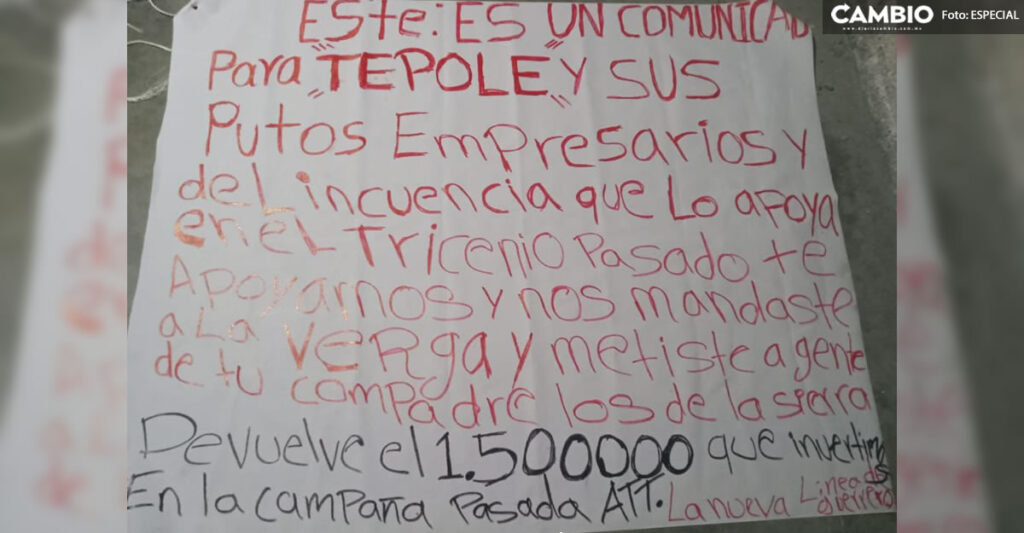 ESte: ES UN COMUNICAD
Para "TEPOLE" Y SUS
Putos Empresarios y
deLincuencia que Lo apoya
en eL Tricenio Pasado te
Apoyamos y nos mandaste
a La VERga y metiste a gente
de tu compadre los de la sierra
Devuelve el 1.500000 que invertimos
En la campaña Pasada ATT. La nueva Linea d
guerrero
CAMBIO
www.diariocambio.com.mx
Foto: ESPECIAL